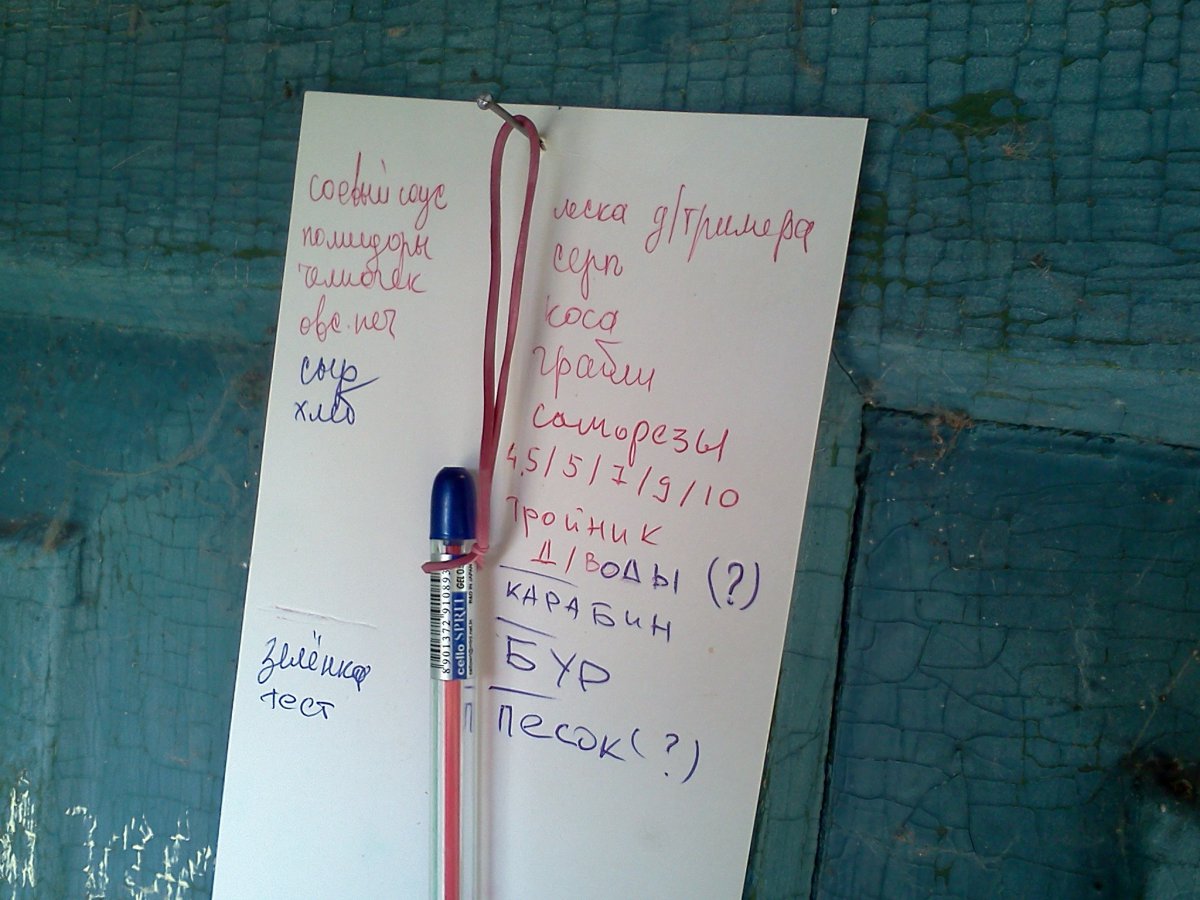 соевый соус
помидоры
человечек
овс. печ
сыр
хлеб
зелёнка
тест
леска д/тримера
серп
коса
грабли
саморезы
4,5/5/7/9/10
Тройник
Д/ВОДЫ (?)
КАРАБИН
БУР
ПЕСОК (?)
8 901372 910893
cello SPRIT GEL